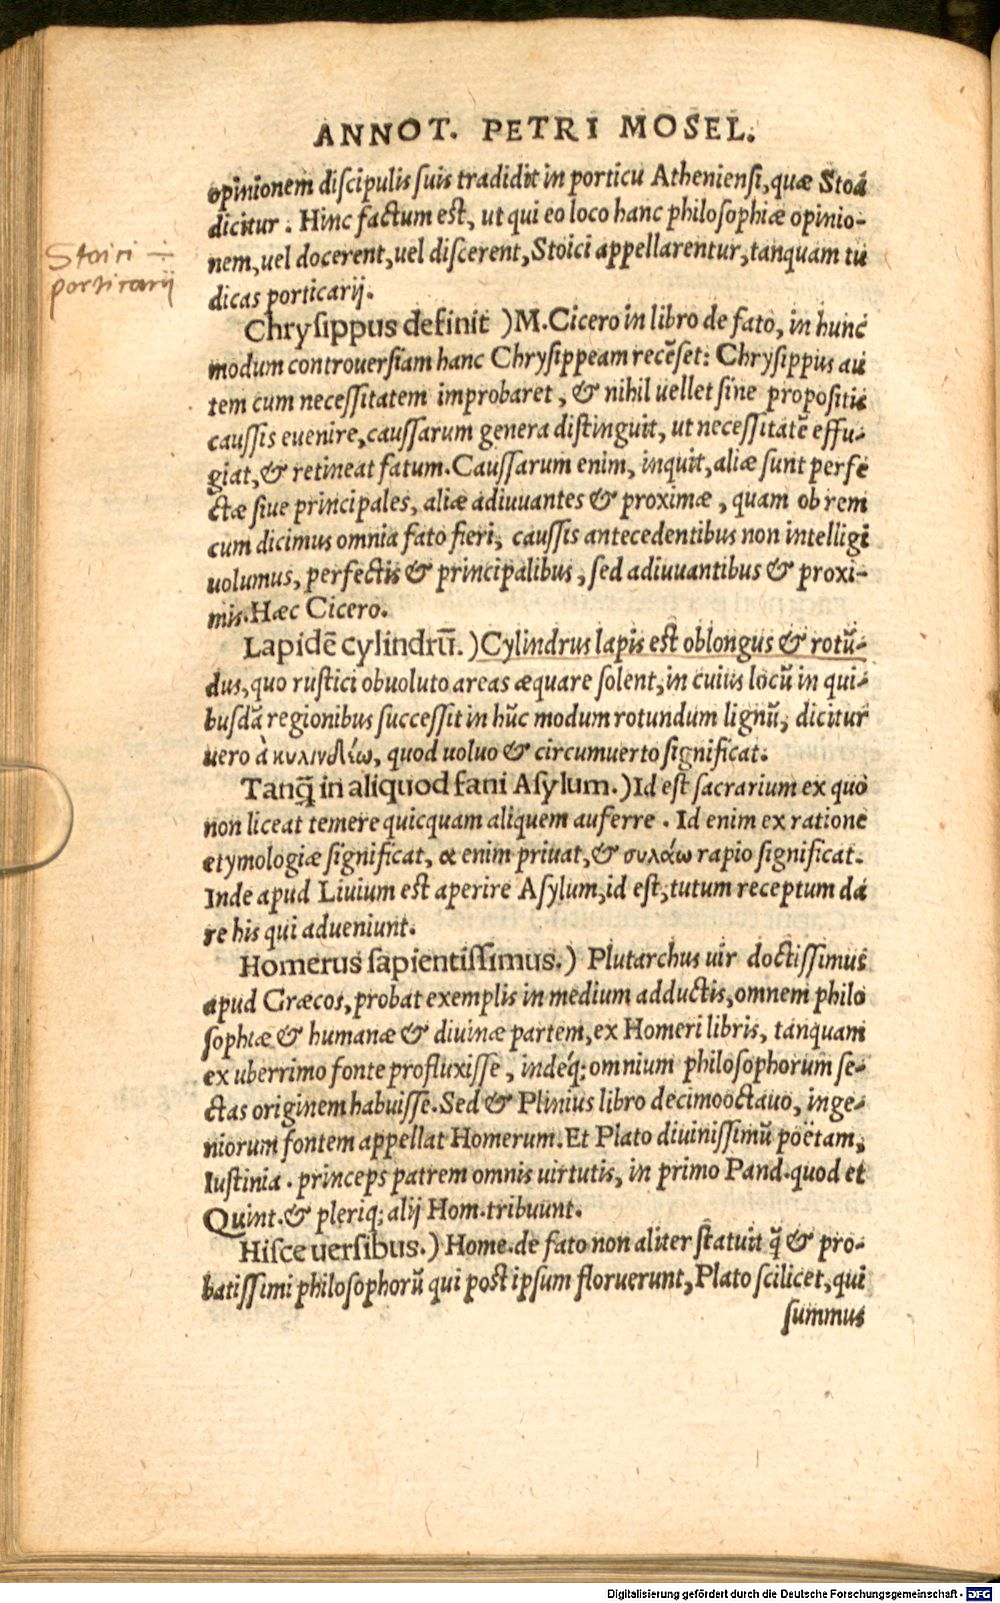 ANNOT. PETRI MOSEL.
opinionem diſcipulis ſuis tradidit in porticu Athenienſi, quæ Stoa
dicitur. Hinc factum eſt, ut qui eo loco hanc philoſophiæ opinio-
nem, uel docerent, uel diſcerent, Stoici appellarentur, tanquam tu
dicas porticarij.
Stoici ÷
porticarij
Chryſippus definit ) M. Cicero in libro de fato, in hunc
modum controuerſiam hanc Chryſippeam recēſet: Chryſippus au
tem cum neceſſitatem improbaret, & nihil uellet ſine propoſitis
cauſſis euenire, cauſſarum genera diſtinguit, ut neceſſitatē effu-
giat, & retineat fatum. Cauſſarum enim, inquit, aliæ ſunt perfe
ctæ ſiue principales, aliæ adiuuantes & proximæ, quam ob rem
cum dicimus omnia fato fieri, cauſſis antecedentibus non intelligi
uolumus, perfectis & principalibus, ſed adiuuantibus & proxi-
mis. Hæc Cicero.
Lapidē cylindrū. ) Cylindrus lapis eſt oblongus & rotū-
dus, quo ruſtici obuoluto areas æquare ſolent, in cuius locū in qui-
buſdā regionibus ſucceſſit in hūc modum rotundum lignū, dicitur
uero à κυλινδέω, quod uoluo & circumuerto ſignificat.
Tanq̄ in aliquod fani Aſylum. ) Id eſt ſacrarium ex quo
non liceat temere quicquam aliquem auferre. Id enim ex ratione
etymologiæ ſignificat, α enim priuat, & συλάω rapio ſignificat.
Inde apud Liuium eſt aperire Aſylum, id eſt, tutum receptum da
re his qui adueniunt.
Homerus ſapientiſſimus. ) Plutarchus uir doctiſſimus
apud Græcos, probat exemplis in medium adductis, omnem philo
ſophiæ & humanæ & diuinæ partem, ex Homeri libris, tanquam
ex uberrimo fonte profluxiſſe, indeq́; omnium philoſophorum ſe-
ctas originem habuiſſe. Sed & Plinius libro decimooctauo, inge-
niorum fontem appellat Homerum. Et Plato diuiniſſimū poëtam,
Iuſtinia. princeps patrem omnis uirtutis, in primo Pand. quod et
Quint. & pleriq; alij Hom. tribuunt.
Hiſce uerſibus. ) Home. de fato non aliter ſtatuit q̄ & pro-
batiſſimi philoſophorū qui poſt ipſum floruerunt, Plato ſcilicet, qui
ſummus
Digitalisierung gefördert durch die Deutsche Forschungsgemeinschaft - DFG